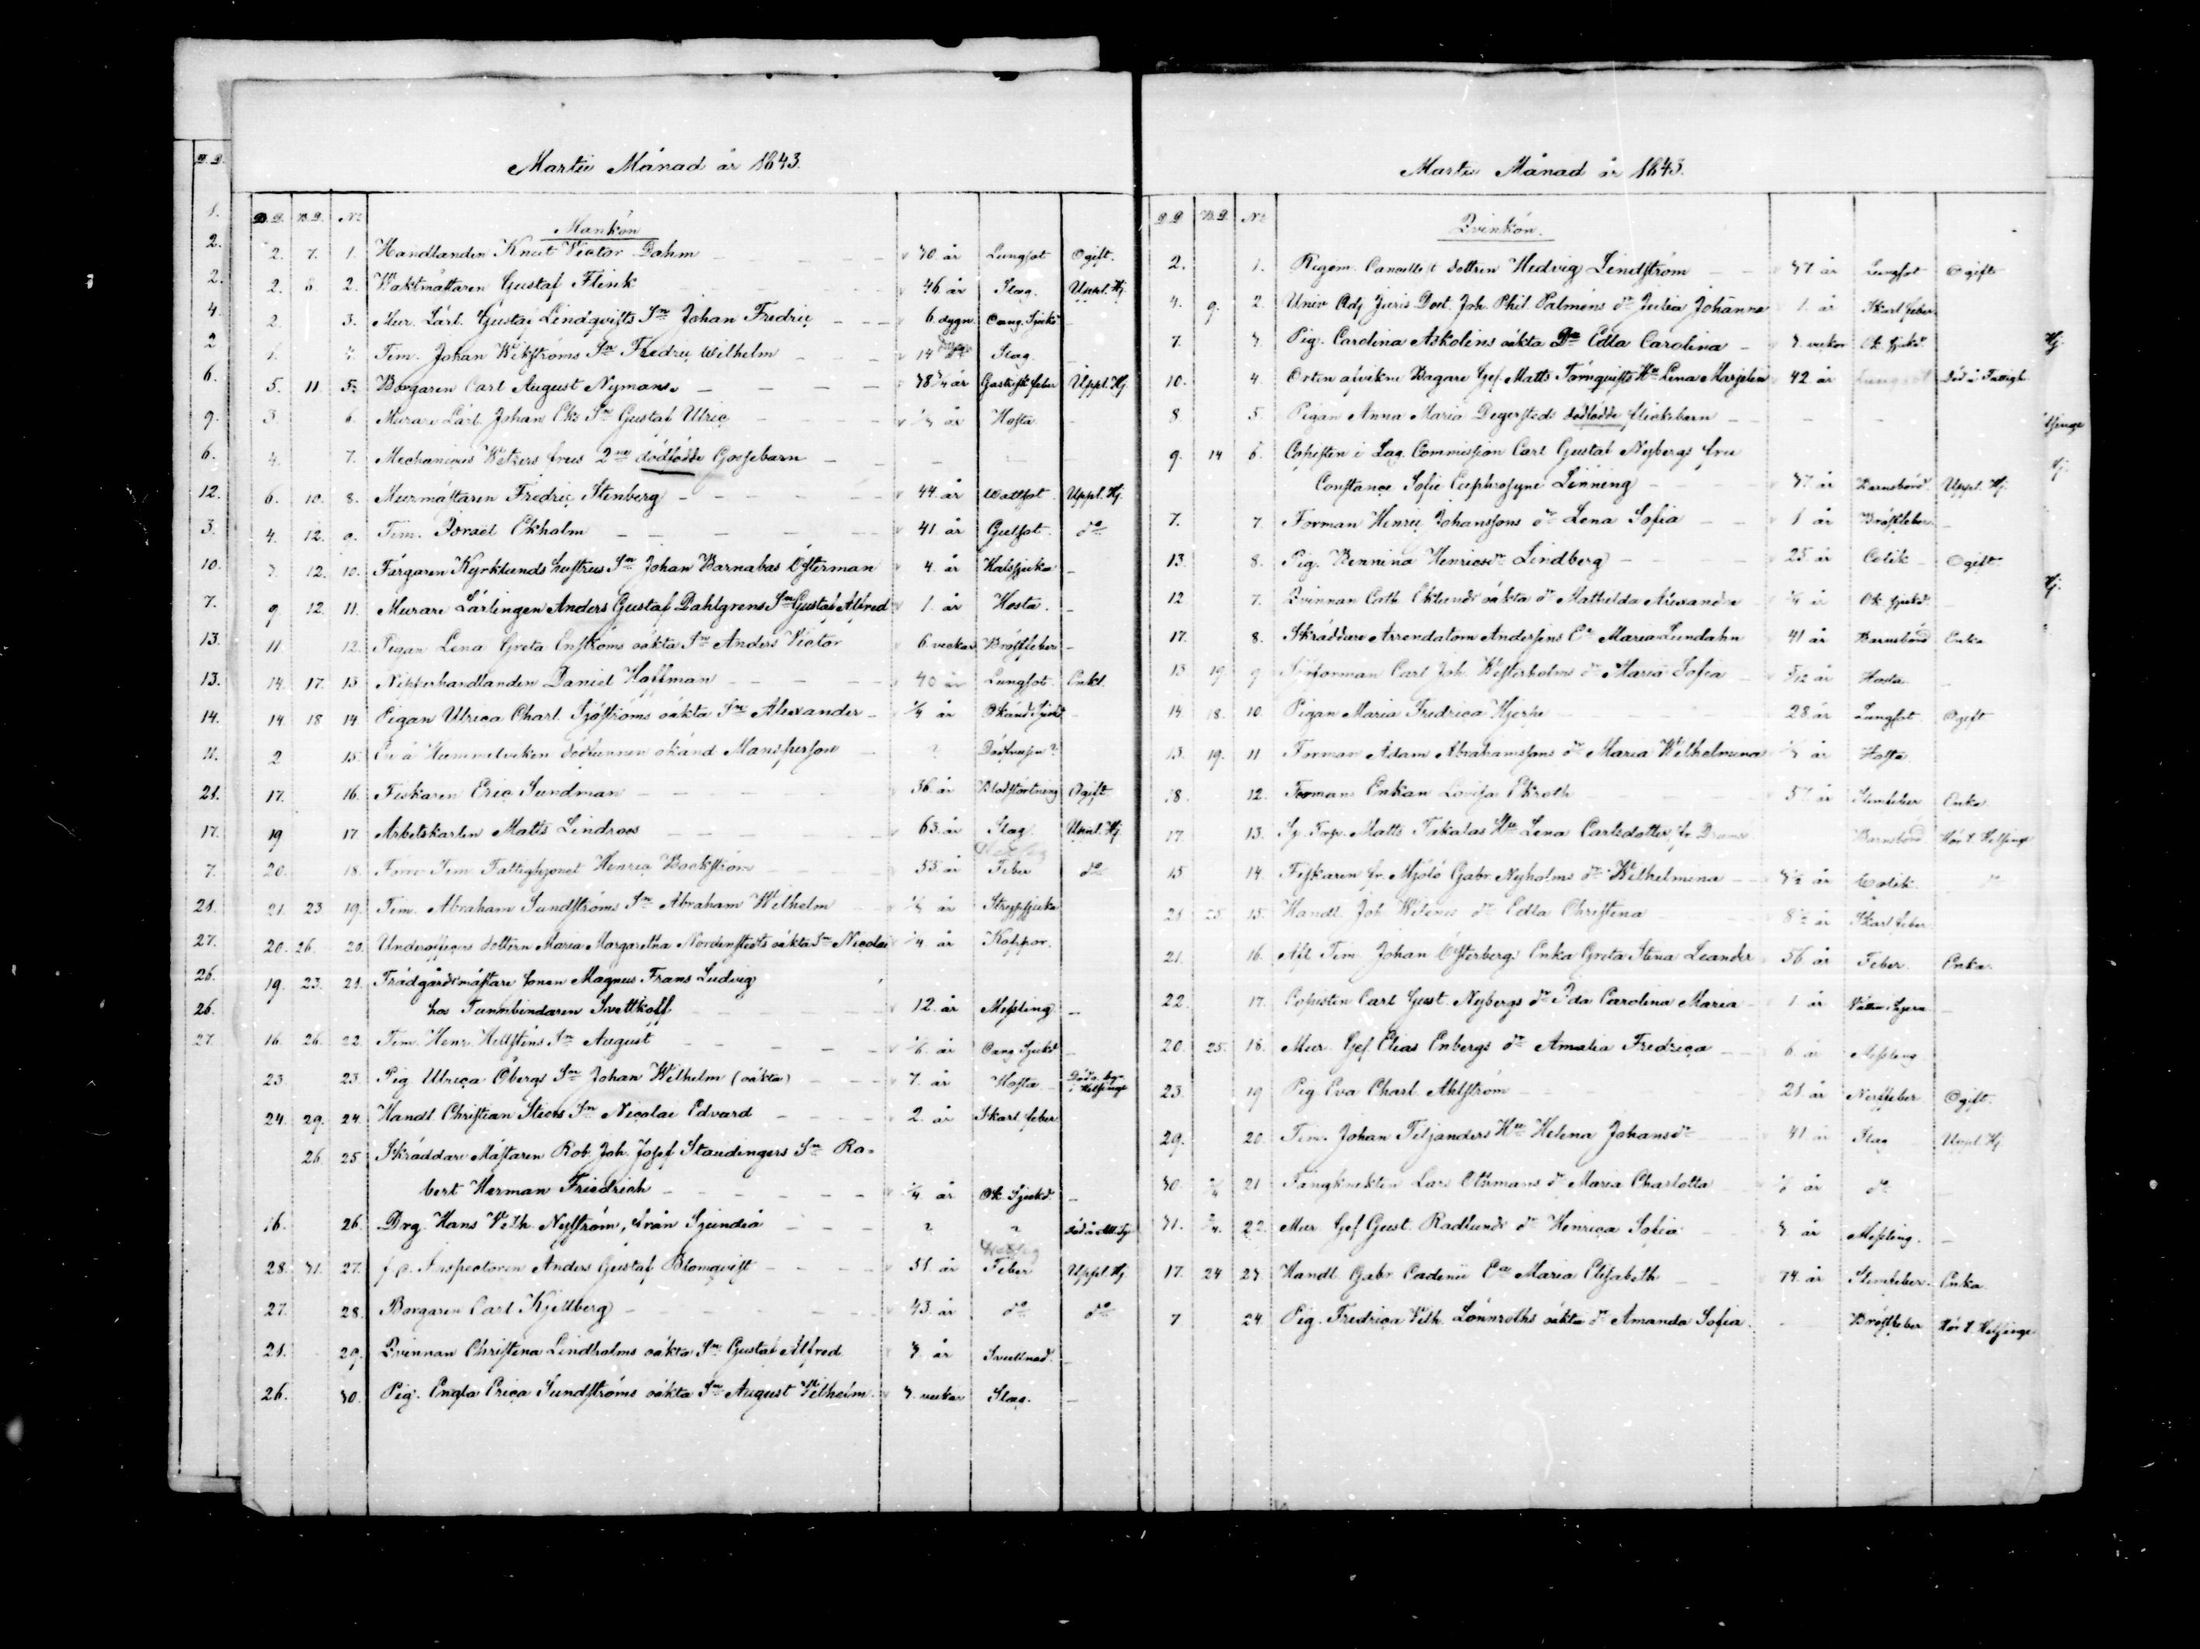 Martii Månad år 1843.
D.D. B.D. No
Mankön
2. 7. 1. Handlanden Knut Victor Dahm 30 år Lungsot Ogift.
2. 8. 2. Waktmästaren Gustaf Flink 46 år Slag. Uppl. Hj.
2. 3. Mur. Lärl. Gustaf Lindqvists Sn Johan Fredric 6 dygn. Oang. Sjukd
Tim. Johan Wikströms Sn Fredric Wilhelm 14 Slag.
5. 11 5. Borgaren Carl August Nyman 38 3/4 år Gastrisk feber Uppl. Hj
3. 6. Murare Lärl. Johan Eks Sn Gustaf Ulric 1/3 år Hosta
4. 7. Mechanicus Wetzers frus 2ne dödfödde Gossebarn
6. 10. 8. Murmästaren Fredric Stenberg 44 år Wattsot Uppl. Hj.
4. 12. 9. Tim. Israel Ekholm 41 år Gulsot do
3. 12. 10. Färgaren Kyrklunds hustrus Sn Johan Barnabas Österman 4 år Halssjuka
9 12 11. Murare Lärlingen Anders Gustaf Dahlgrens Sn Gustaf Alfred 1. år Hosta.
11. 12. Pigan Lena Greta Enströms oäkta Sn Anders Victor 6 veckor Bröstfeber
14. 17. 13 Nipperhandlanden Daniel Hoffman 40 år Lungsot Enkl.
14 18 14 Pigan Ulrica Charl. Sjöströms oäkta Sn Alexander 1/4 år Okänd Sjukd
2 15. En å Hummelviken dödfunnen okänd Mansperson ?
17. 16. Fiskaren Eric Sundman 36 år Blodstörtning Ogift
19 17 Arbetskarlen Matts Lindroos 63 år Slag Uppl. Hj.
20. 18. Tim. Fattighjonet Henric Backström 55 år Feber do
21. 23 19. Tim. Abraham Sundströms Sn Abraham Wilhelm 1/3 år Strypsjuka
20. 26. 20. Underofficers dottern Maria Margaretha Nordenstedts oäkta Sn Nicolai 1/4 år Koppor.
19. 23. 21. Trädgårdsmästare sonen Magnus Frans Ludvig
hos Tunnbindaren Svettkoff 12. år Messling
16. 26. 22. Tim. Henr. Hellsténs Sn August 1/6 år Oang. Sjukd
23 23. Pig. Ulrica Öbergs Sn Johan Wilhelm (oäkta) 7. år Hosta Helsinge
24. 29. 24. Handl. Christian Sn Nicolai Edvard 2. år Skarl. feber
26 25 Skräddare Mästaren Rob. Joh. Josef Staudingers Sn Ro-
bert Herman Friedrich 1/4 år Ok. Sjukd.
16. 26. Drg. Hans Wilh. Nyström, från Sjundeå ? ?
28. 31. 27. f.d. Inspectoren Anders Gustaf Blomqvist 51 år Feber Uppl. Hj
27. 28. Borgaren Carl Kjellberg 43 år do do
21. 29. Qvinnan Christina Lindholms oäkta Sn Gustaf Alfred 3 år Svullnad.
26. 30. Pig. Engla Erica Sundströms oäkta Sn August Wilhelm 3 veckor Slag.
Martii Månad år 1843.
D.D B.D. No
Qvinkön.
2. 1. Regem. Cancellist dottren Hedvig Lindström 37 år Lungsot Ogift
4. 9. 2. Univ. Adj. Juris Doct. Joh. Phil. Palméns dr Julia Johanna 1. år Skarl. feber
7. 3. Pig. Carolina Askolins oäkta Dr Edla Carolina 3 veckor Ok. sjukd.
10. 4. Orten afvikne Bagare Gef. Matts Törnqvists Hu Lena Marjelin 42 år Lungsot Död å Fattigh.
8 5. Pigan Anna Maria Degerstedts dödfödde flickebarn
9. 14 6. Copisten i Lag. Commission Carl Gustaf Nybergs fru
Constance Sofie Euphrosyne Lönning 37 år Barnsbörd. Uppl. Hj.
7. 7. Forman Henric Johanssons dr Lena Sofia 1 år Bröstfeber
13. 8. Pig. Bennina Henricsdr Lindberg 25 år Colik Ogift
12 7. Qvinnan Cath. Eklunds oäkta dr Mathilda Alexandra 3/4 år Ok. sjukd.
17. 8. Skräddare Arrendatorn Anderssons Ea Maria Lundahn 41 år Barnsbörd Enka
13 19. 9 Carl Joh. Westerholms dr Maria Sofia 5/12 år Hosta
14 18. 10. Pigan Maria Fredrica Hjerpe 28 år Lungsot Ogift
13. 19. 11 Forman Adam Abrahamssons dr Maria Wilhelmina 1/3 år Hosta
18. 12. Formans Enkan Lovisa Ekroth 57 år Slemfeber Enka
17. 13. Matts Takalas Hu Lena Carlsdotter fr Barnsbörd Hör t. Helsinge
15 14. Fiskaren fr. Mjölö Gabr. Nyholms dr Wilhelmina 3 1/2 år Colik do
21 25 15. Handl. Joh. Wilenii dr Edla Christina 8 1/2 år Skarl. feber
21. 16. Afl. Tim. Johan Österbergs Enka Greta Stina Leander 56 år Feber. Enka.
22. 17. Copisten Carl Gust. Nybergs dr Ida Carolina Maria 1. år
20. 25. 18. Mur. Gef. Elias Enbergs dr Amalia Fredrica 6 år Messling
23. 19 Pig. Eva Charl. Ahlström 21. år Nervfeber Ogift.
29. 20. Tim. Johan Tiljanders Hu Helena Johansdr 41 år Slag Uppl. Hj
30. 2/4 21 Fångknekten Lars Öhmans dr Maria Charlotta 1/6 år do
31. 2/4. 22. Mur. Gef. Gust. Radlunds dr Henrica Sofia 3 år Messling.
17. 24 23 Handl. Gabr. Cadenii Ea Maria Elisabeth 74. år Slemfeber. Enka.
7 24. Pig. Fredrica Wilh. Lönnroths oäkta dr Amanda Sofia. Bröstfeber Hör t. Helsinge